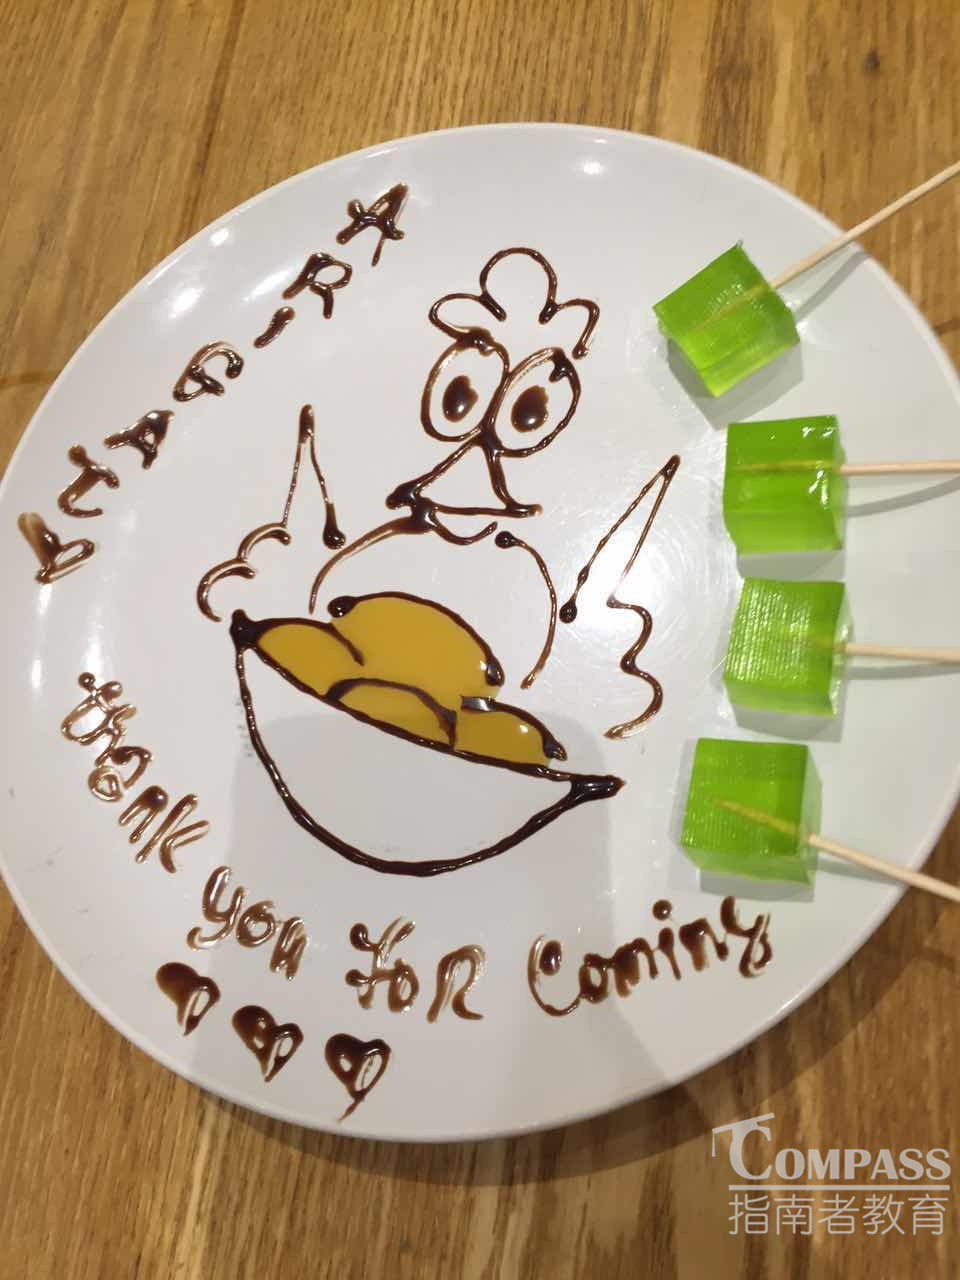 thank you For Coming
COMPASS
指南者教育